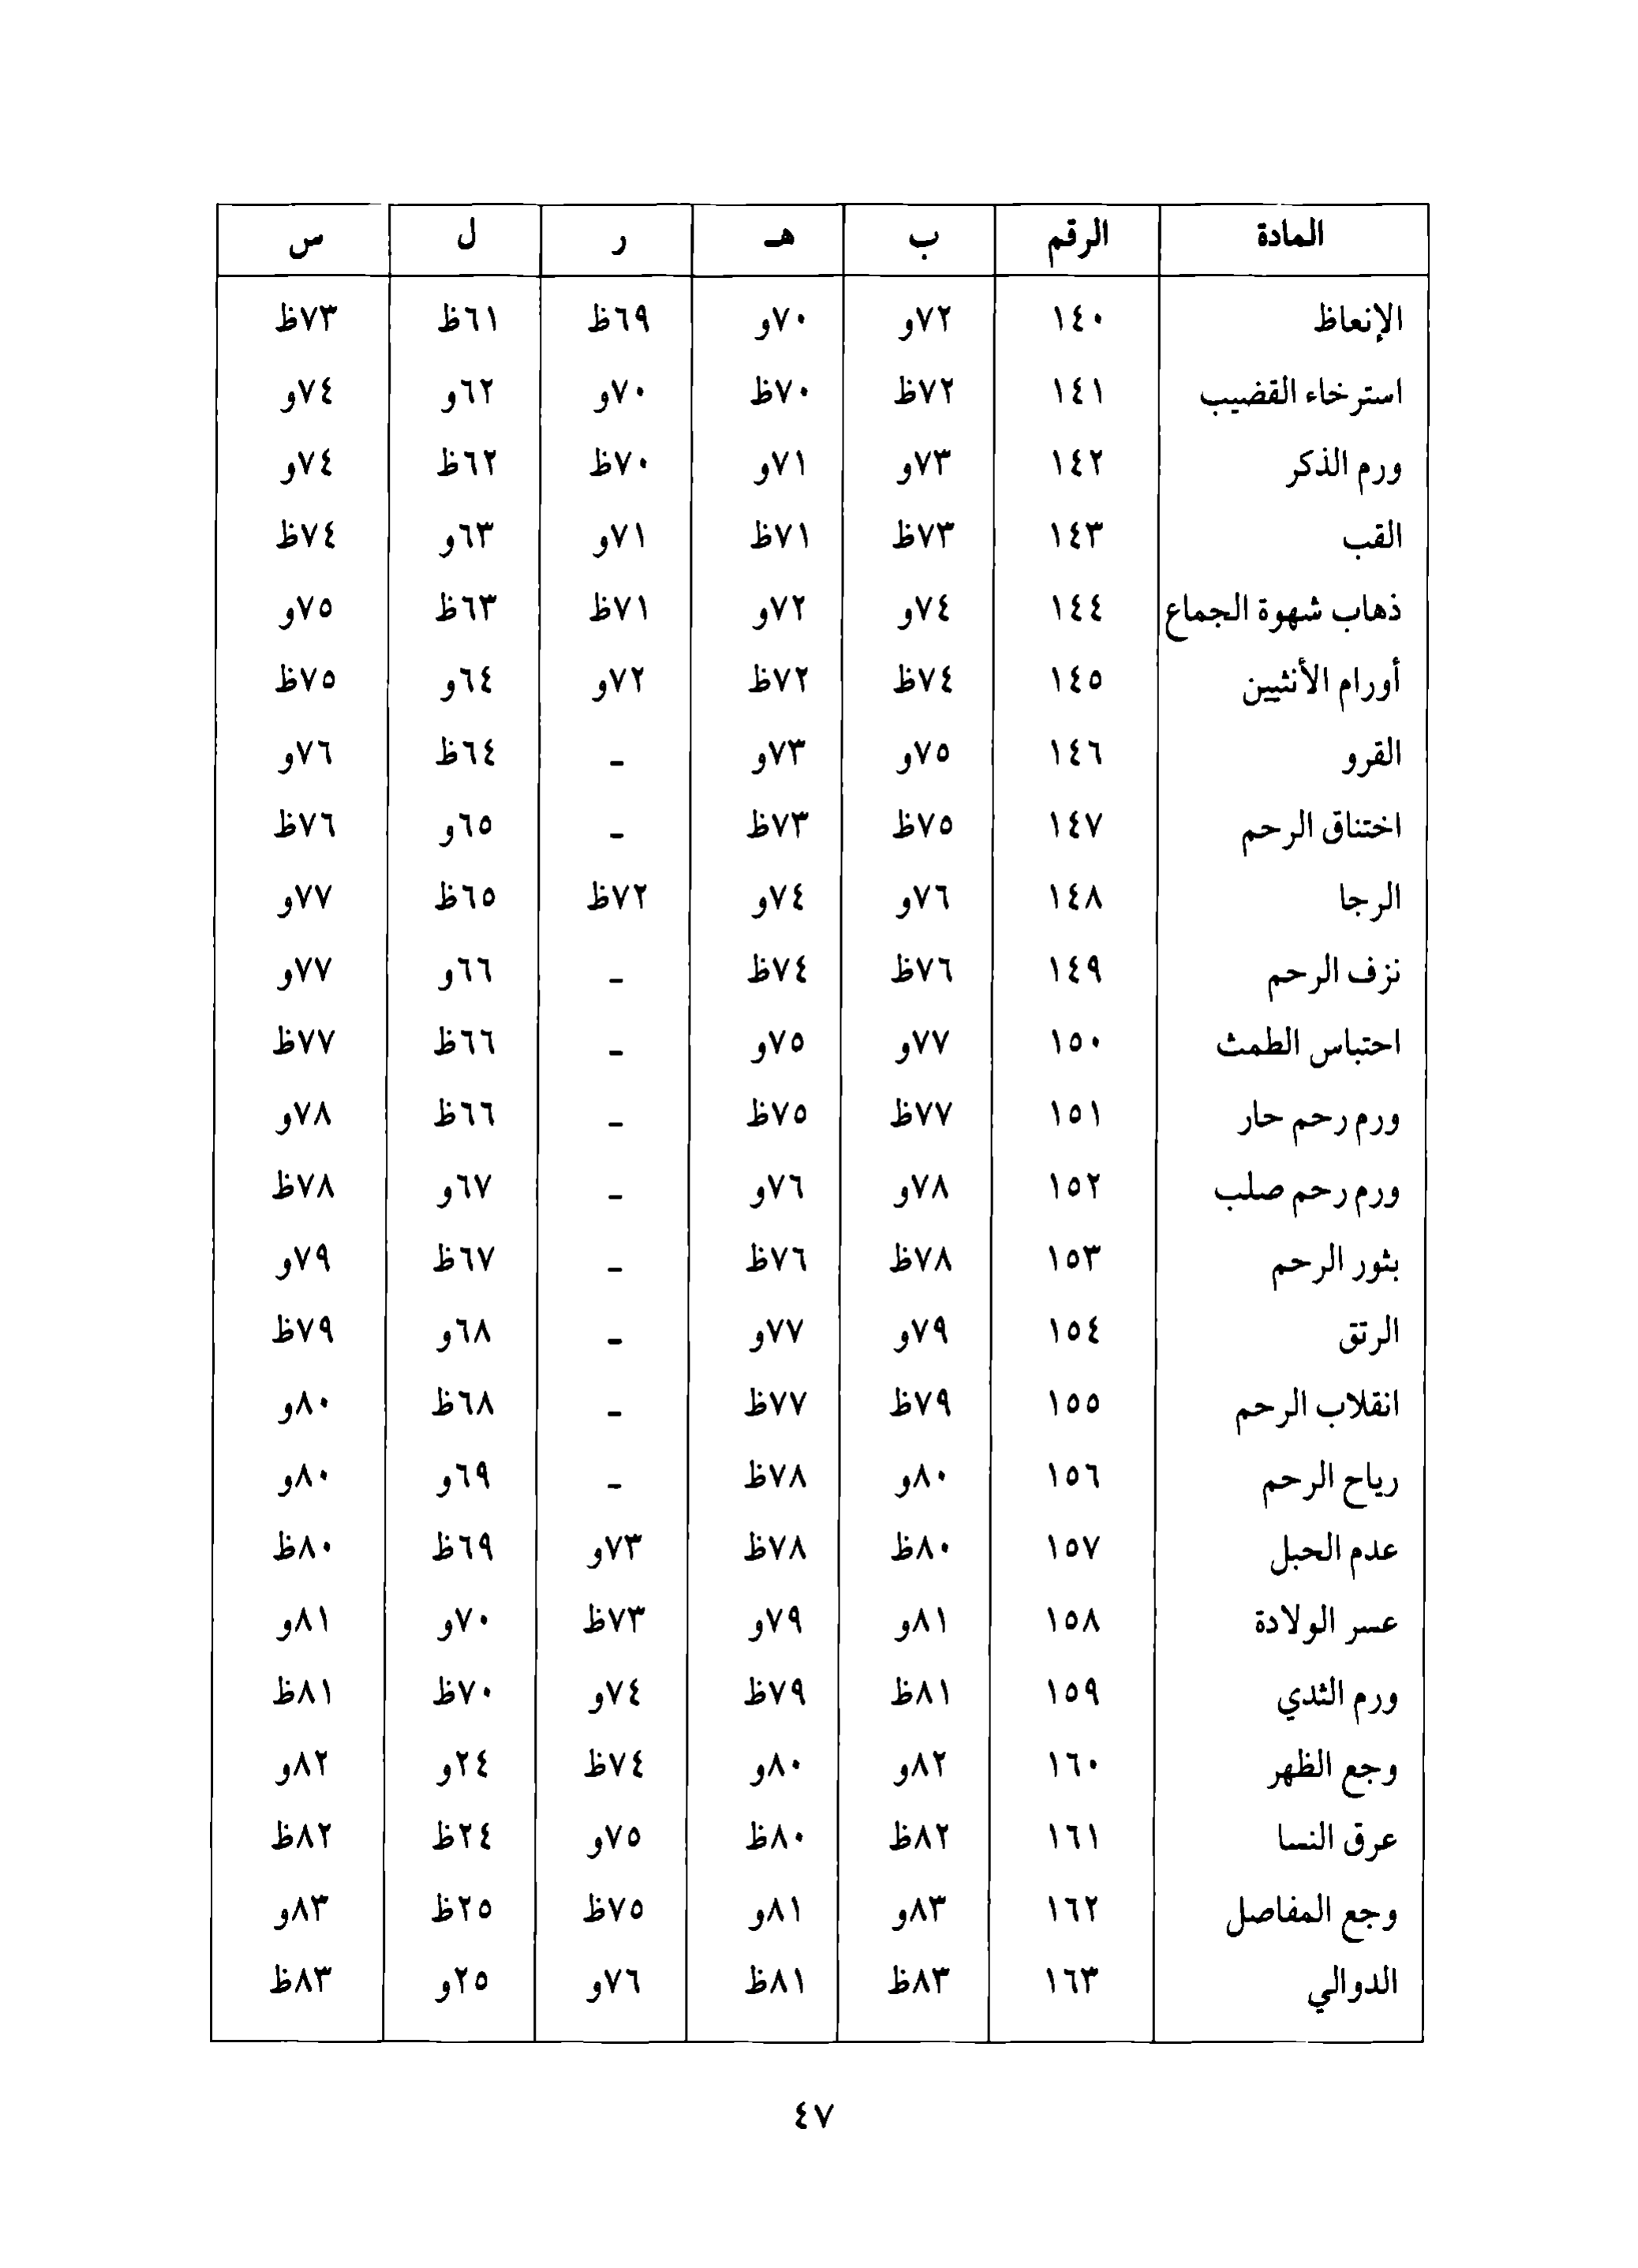 المادة الرقم ب هـ ر ل س
الإنعاظ ١٤٠ ٧٢و ٧٠و ٦٩ظ ٦١ظ ٧٣ظ
استرخاء القضيب ١٤١ ٧٢ظ ٧٠ظ ٧٠و ٦٢و ٧٤و
ورم الذكر ١٤٢ ٧٣و ٧١و ٧٠ظ ٦٢ظ ٧٤و
القب ١٤٣ ٧٣ظ ٧١ظ ٧١و ٦٣و ٧٤ظ
ذهاب شهوة الجماع ١٤٤ ٧٤و ٧٢و ٧١ظ ٦٣ظ ٧٥و
أورام الأنثيين ١٤٥ ٧٤ظ ٧٢ظ ٧٢و ٦٤و ٧٥ظ
القرو ١٤٦ ٧٥و ٧٣و - ٦٤ظ ٧٦و
اختناق الرحم ١٤٧ ٧٥ظ ٧٣ظ - ٦٥و ٧٦ظ
الرجا ١٤٨ ٧٦و ٧٤و ٧٢ظ ٦٥ظ ٧٧و
نزف الرحم ١٤٩ ٧٦ظ ٧٤ظ - ٦٦و ٧٧و
احتباس الطمث ١٥٠ ٧٧و ٧٥و - ٦٦ظ ٧٧ظ
ورم رحم حار ١٥١ ٧٧ظ ٧٥ظ - ٦٦ظ ٧٨و
ورم رحم صلب ١٥٢ ٧٨و ٧٦و - ٦٧و ٧٨ظ
بثور الرحم ١٥٣ ٧٨ظ ٧٦ظ - ٦٧ظ ٧٩و
الرتق ١٥٤ ٧٩و ٧٧و - ٦٨و ٧٩ظ
انقلاب الرحم ١٥٥ ٧٩ظ ٧٧ظ - ٦٨ظ ٨٠و
رياح الرحم ١٥٦ ٨٠و ٧٨ظ - ٦٩و ٨٠و
عدم الحبل ١٥٧ ٨٠ظ ٧٨ظ ٧٣و ٦٩ظ ٨٠ظ
عسر الولادة ١٥٨ ٨١و ٧٩و ٧٣ظ ٧٠و ٨١و
ورم الثدي ١٥٩ ٨١ظ ٧٩ظ ٧٤و ٧٠ظ ٨١ظ
وجع الظهر ١٦٠ ٨٢و ٨٠و ٧٤ظ ٢٤و ٨٢و
عرق النسا ١٦١ ٨٢ظ ٨٠ظ ٧٥و ٢٤ظ ٨٢ظ
وجع المفاصل ١٦٢ ٨٣و ٨١و ٧٥ظ ٢٥ظ ٨٣و
الدوالي ١٦٣ ٨٣ظ ٨١ظ ٧٦و ٢٥و ٨٣ظ
٤٧